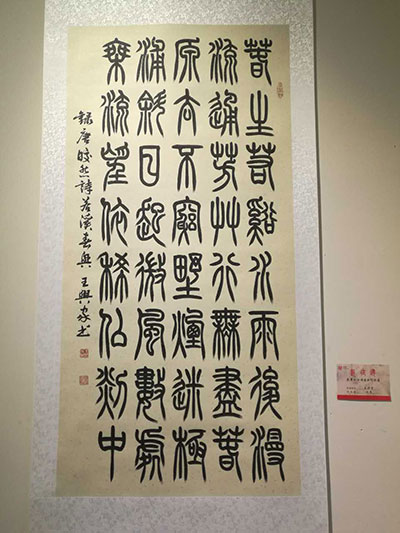 春生若谿水雨後漫
流通芳艸行無盡春
原去不窮野煙迷極
浦斜日起微風數處
乘流望依稀佀剡中
録唐皎然詩若溪春興 王興家书